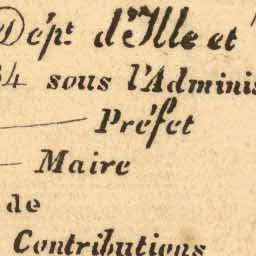 Dépt. d'Ille et
34 sous l'Adminis
Préfet
Maire
de
Contributions